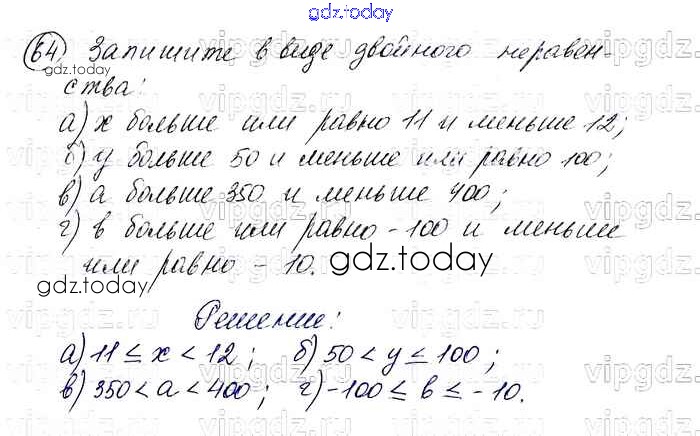 gdz.today
64. Запишите в виде двойного неравен-
gdz.today
ства:
а) x больше или равно 11 и меньше 12;
б) y больше 50 и меньше или равно 100;
в) a больше 350 и меньше 400;
г) в больше или равно -100 и меньше
или равно -10. gdz.today
gdz.today
Решение:
а) 11 ≤ x < 12; б) 50 < y ≤ 100;
в) 350 < a < 400; г) -100 ≤ в ≤ -10.